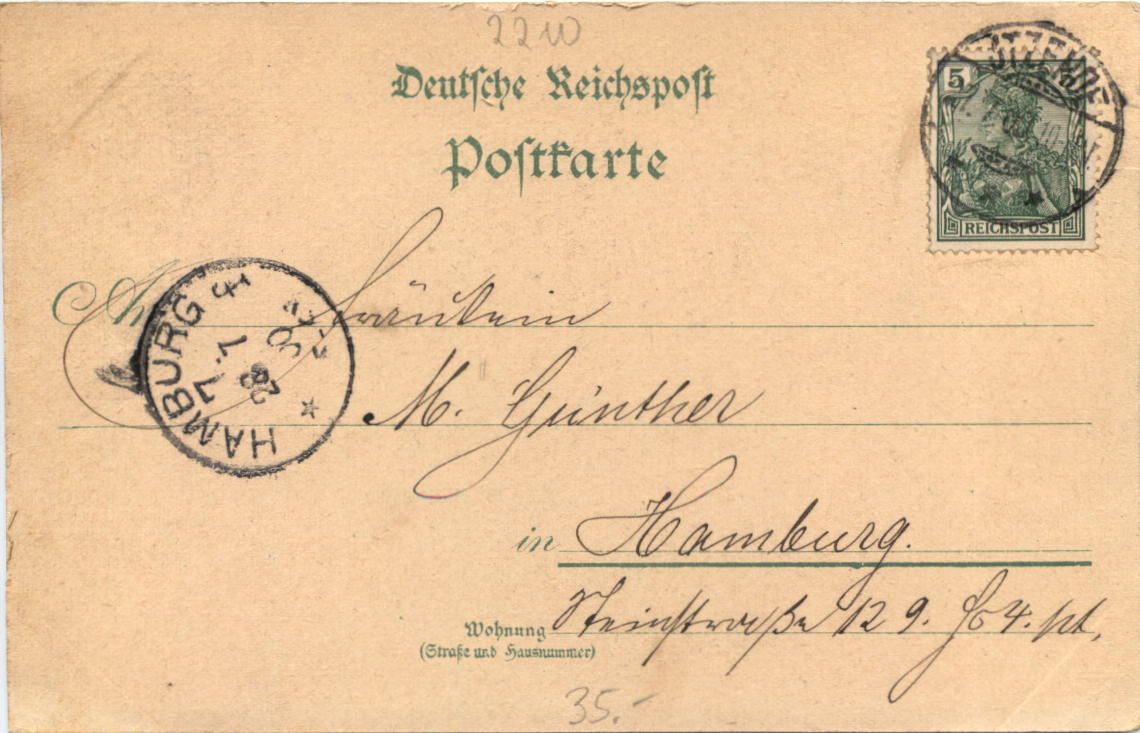 2210
Deutsche Reichspost
Postkarte
5
REICHSPOST
An
Fräulein
M. Günther
HAMBURG
7.
in Hamburg.
Steinstraße 129. Hs 4. pt.
Wohnung
(Straße und Hausnummer)
35.-